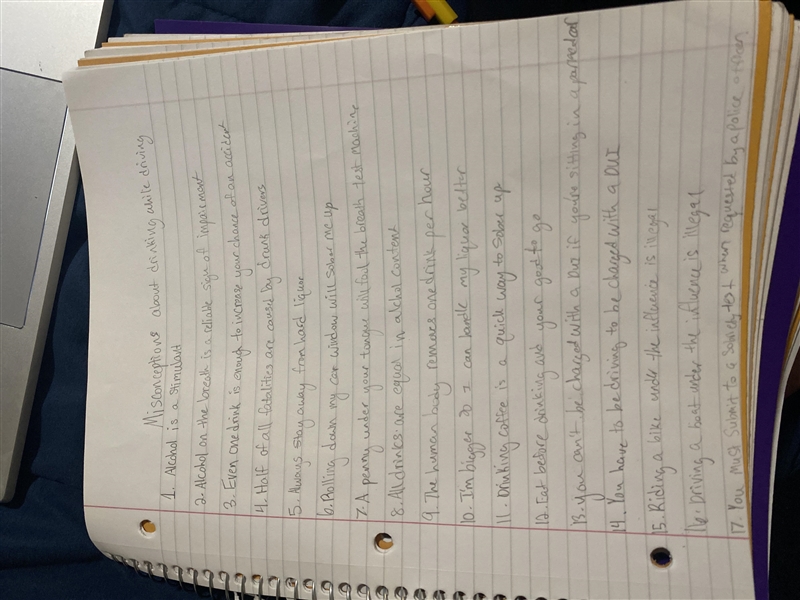 Misconceptions about drinking while driving
1. Alcohol is a stimulant
2. Alcohol on the breath is a reliable sign of impairment
3. Even one drink is enough to increase your chance of an accident
4. Half of all fatalities are caused by drunk drivers
5. Always stay away from hard liquor
6. Rolling down my car window will sober me up
7. A penny under your tongue will fool the breath test machine
8. All drinks are equal in alchol content
9. The human body removes one drink per hour
10. I'm bigger so I can handle my liquor better
11. Drinking coffee is a quick way to sober up
12. Eat before drinking and your good to go
13. You can't be charged with a DUI if you're sitting in a parked car
14. You have to be driving to be charged with a DUI
15. Riding a bike under the influence is illegal
16. Driving a boat under the influence is illegal
17. You must submit to a sobriety test when requested by a police officer